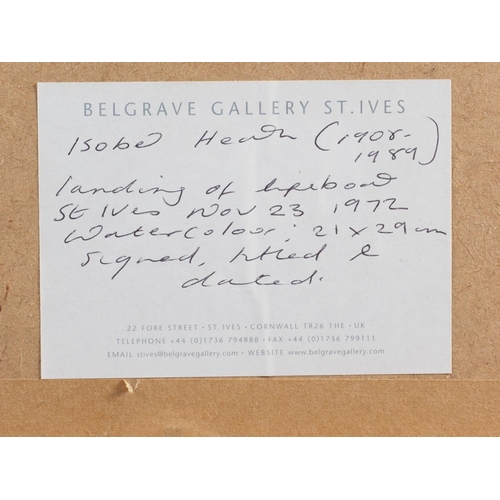 BELGRAVE GALLERY ST.IVES
Isobel Heath (1908-
1989)
landing of lifeboat
St Ives Nov 23 1972
Watercolour: 21 x 29 cm
signed, titled &
dated.
22 FORE STREET • ST. IVES • CORNWALL TR26 1HE • UK
TELEPHONE +44 (0)1736 794888 • FAX +44 (0)1736 799111
EMAIL stives@belgravegallery.com • WEBSITE www.belgravegallery.com